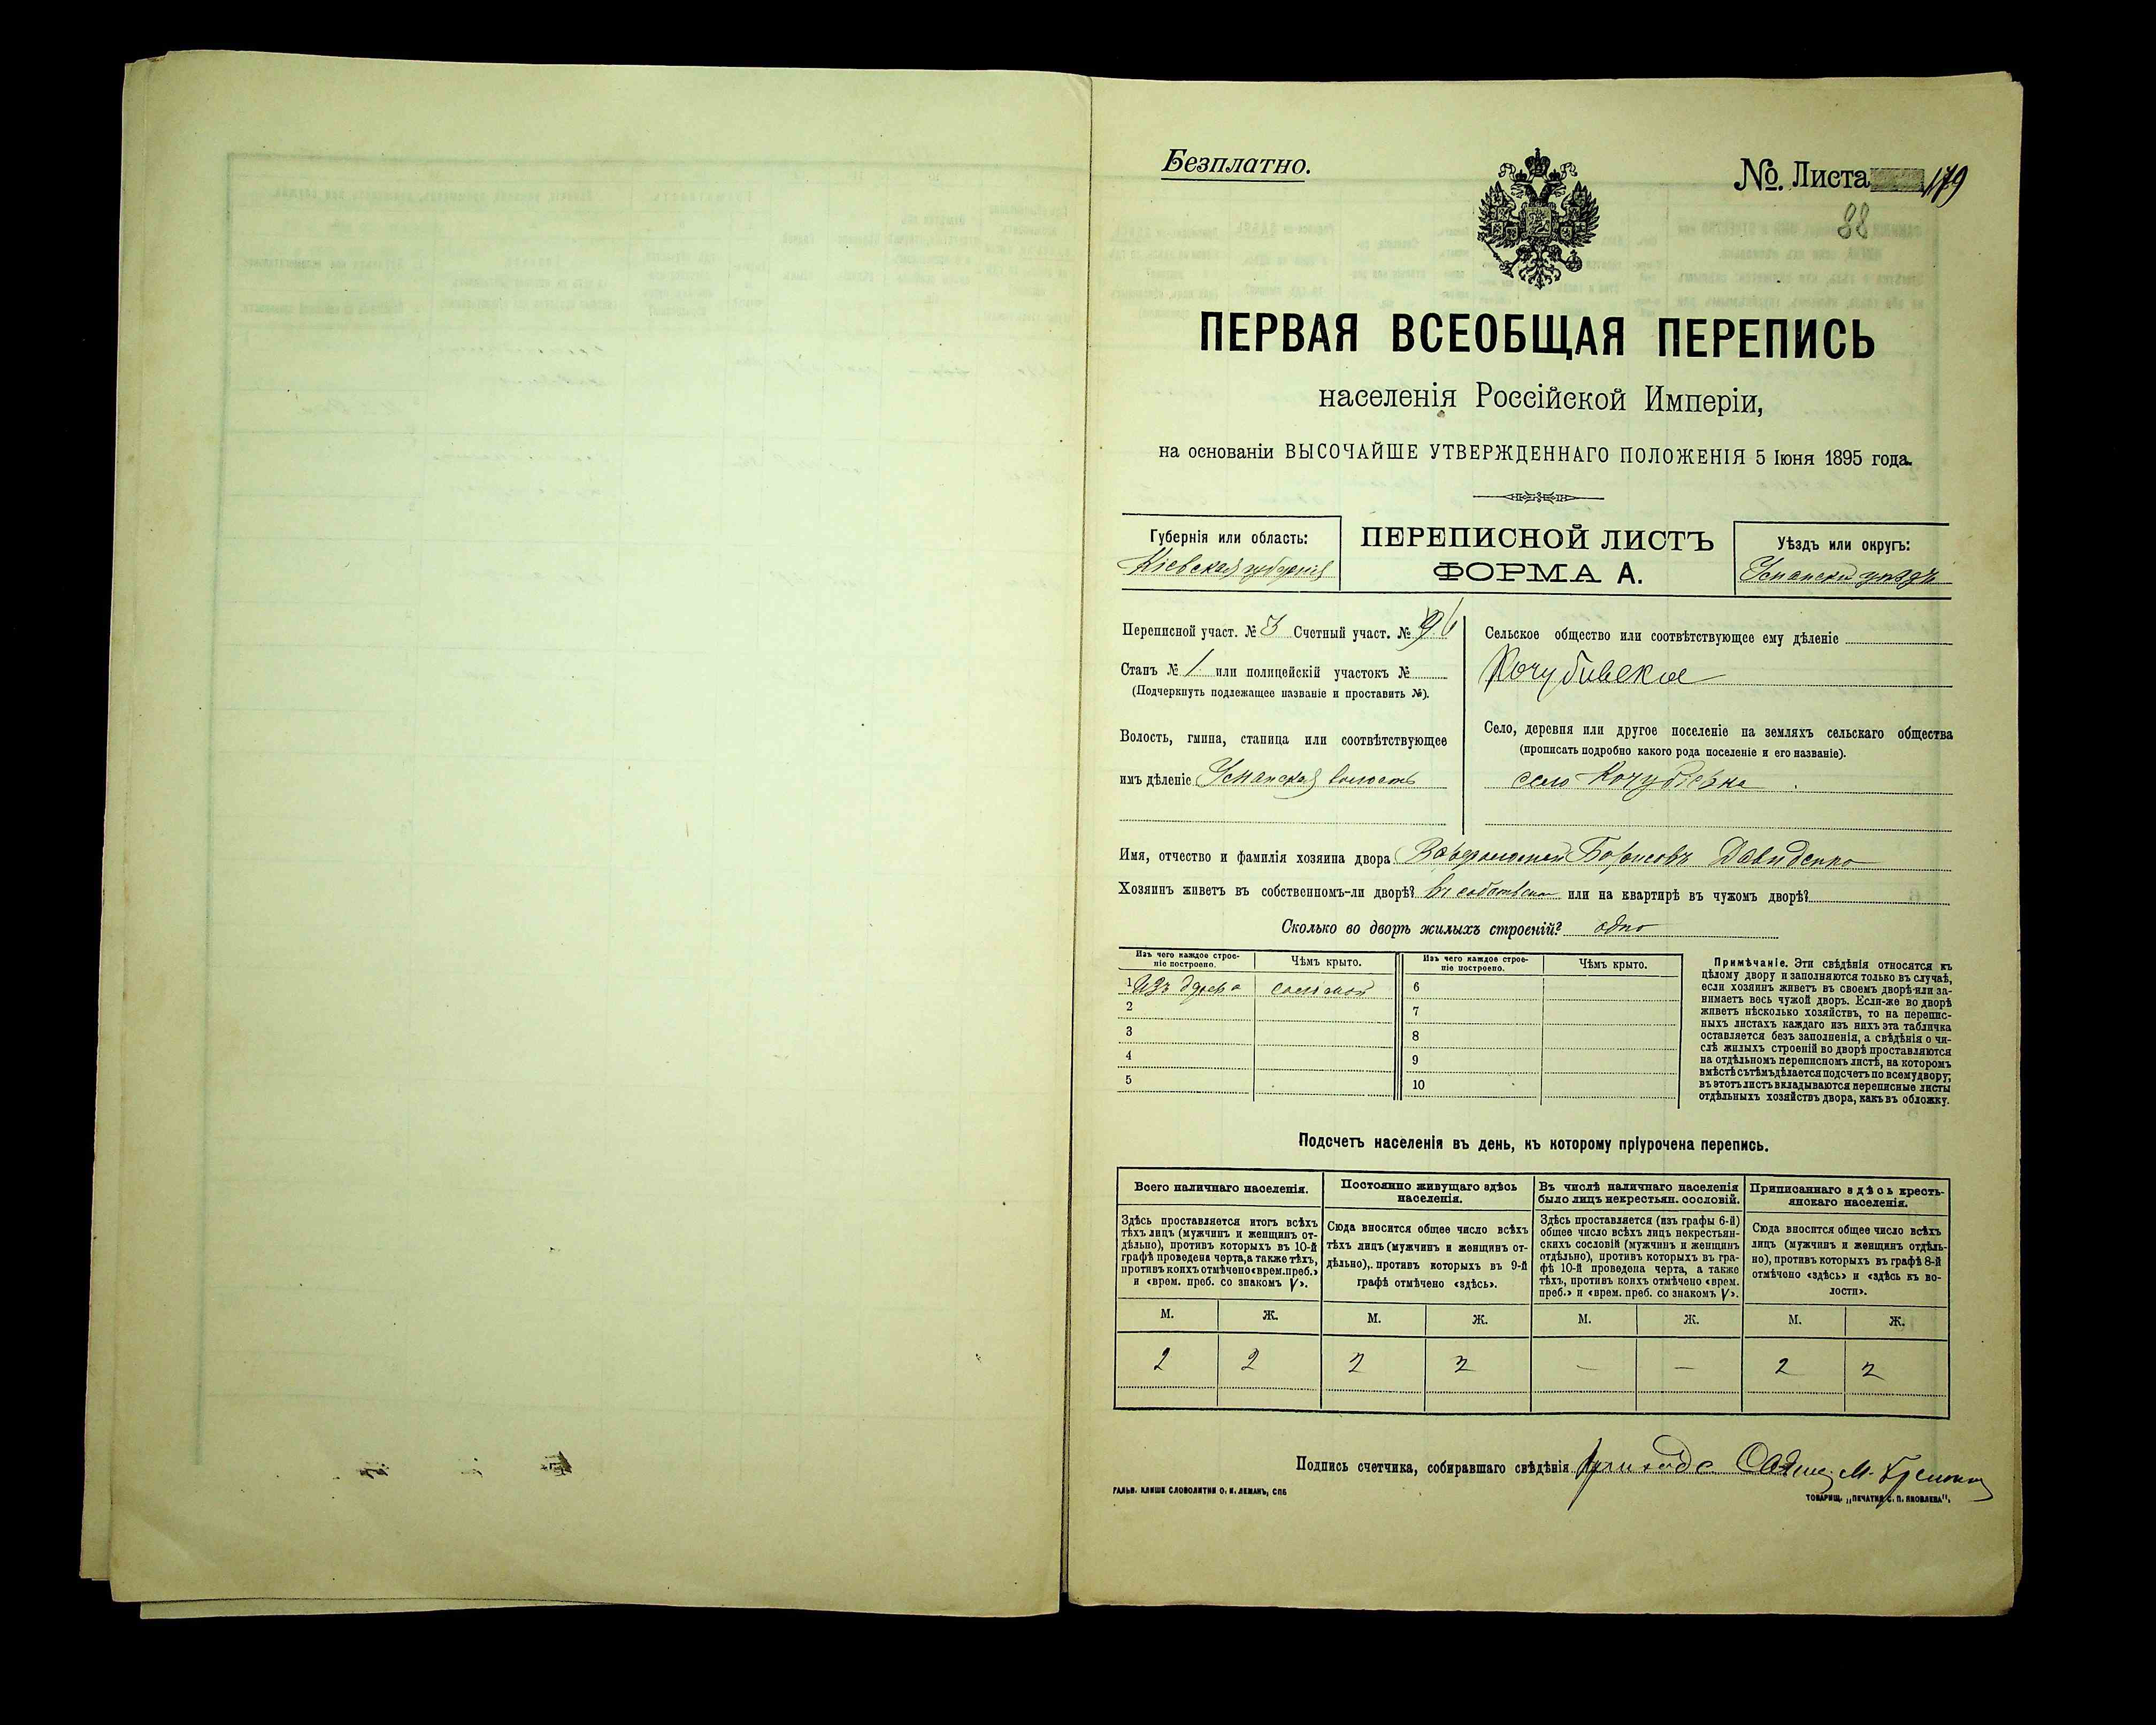 Безплатно.
№. Листа 179
38
ПЕРВАЯ ВСЕОБЩАЯ ПЕРЕПИСЬ
населенія Россійской Имперіи,
на основаніи ВЫСОЧАЙШЕ УТВЕРЖДЕННАГО ПОЛОЖЕНІЯ 5 Іюня 1895 года.
Губернія или область:
Кіевская губернія
ПЕРЕПИСНОЙ ЛИСТЪ
ФОРМА А.
Уѣздъ или округъ:
уѣздъ
Переписной участ. № 3 Счетный участ. №
Станъ № 1 или полицейскій участокъ №
(Подчеркнуть подлежащее названіе и проставить №).
Волость, гмина, станица или соотвѣтствующее
имъ дѣленіе Уманская волость
Сельское общество или соотвѣтствующее ему дѣленіе
Кочубивское
Село, деревня или другое поселеніе на земляхъ сельскаго общества
(прописать подробно какого рода поселеніе и его названіе).
село Кочубіевка
Имя, отчество и фамилія хозяина двора Борисовъ Давиденко
Хозяинъ живетъ въ собственномъ-ли дворѣ? въ собственом или на квартирѣ въ чужомъ дворѣ?
Сколько во дворѣ жилыхъ строеній? одно
Изъ чего каждое строе-
ніе построено.
Чѣмъ крыто.
Изъ чего каждое строе-
ніе построено.
Чѣмъ крыто.
1 Изъ дерева соломой
2
3
4
5
6
7
8
9
10
Примѣчаніе. Эти свѣдѣнія относятся къ
цѣлому двору и заполняются только въ случаѣ,
если хозяинъ живетъ въ своемъ дворѣ или за-
нимаетъ весь чужой дворъ. Если-же во дворѣ
живетъ нѣсколько хозяйствъ, то на перепис-
ныхъ листахъ каждаго изъ нихъ эта табличка
оставляется безъ заполненія, а свѣдѣнія о чи-
слѣ жилыхъ строеній во дворѣ проставляются
на отдѣльномъ переписномъ листѣ, на которомъ
вмѣстѣ съ тѣмъ дѣлается подсчетъ по всему двору;
въ этотъ листъ вкладываются переписные листы
отдѣльныхъ хозяйствъ двора, какъ въ обложку.
Подсчетъ населенія въ день, къ которому пріурочена перепись.
Всего наличнаго населенія.
Здѣсь проставляется итогъ всѣхъ
тѣхъ лицъ (мужчинъ и женщинъ от-
дѣльно), противъ которыхъ въ 10-й
графѣ проведена черта, а также тѣхъ,
противъ коихъ отмѣчено «врем. преб.»
и «врем. преб. со знакомъ V».
Постоянно живущаго здѣсь
населенія.
Сюда вносится общее число всѣхъ
тѣхъ лицъ (мужчинъ и женщинъ от-
дѣльно), противъ которыхъ въ 9-й
графѣ отмѣчено «здѣсь».
Въ числѣ наличнаго населенія
было лицъ некрестьян. сословій.
Здѣсь проставляется (изъ графы 6-й)
общее число всѣхъ лицъ некрестьян-
скихъ сословій (мужчинъ и женщинъ
отдѣльно), противъ которыхъ въ гра-
фѣ 10-й проведена черта, а также
тѣхъ, противъ коихъ отмѣчено «врем.
преб.» и «врем. преб. со знакомъ V».
Приписаннаго здѣсь кресть-
янскаго населенія.
Сюда вносится общее число всѣхъ
лицъ (мужчинъ и женщинъ отдѣль-
но), противъ которыхъ въ графѣ 8-й
отмѣчено «здѣсь» и «здѣсь къ во-
лости».
М. Ж. М. Ж. М. Ж. М. Ж.
2 2 2 2 — — 2 2
Подпись счетчика, собиравшаго свѣдѣнія
ГАЛЬВ. КЛИШЕ СЛОВОЛИТНИ О. И. ЛЕМАНЪ, СПБ
ТОВАРИЩ. „ПЕЧАТНЯ С. П. ЯКОВЛЕВА“,